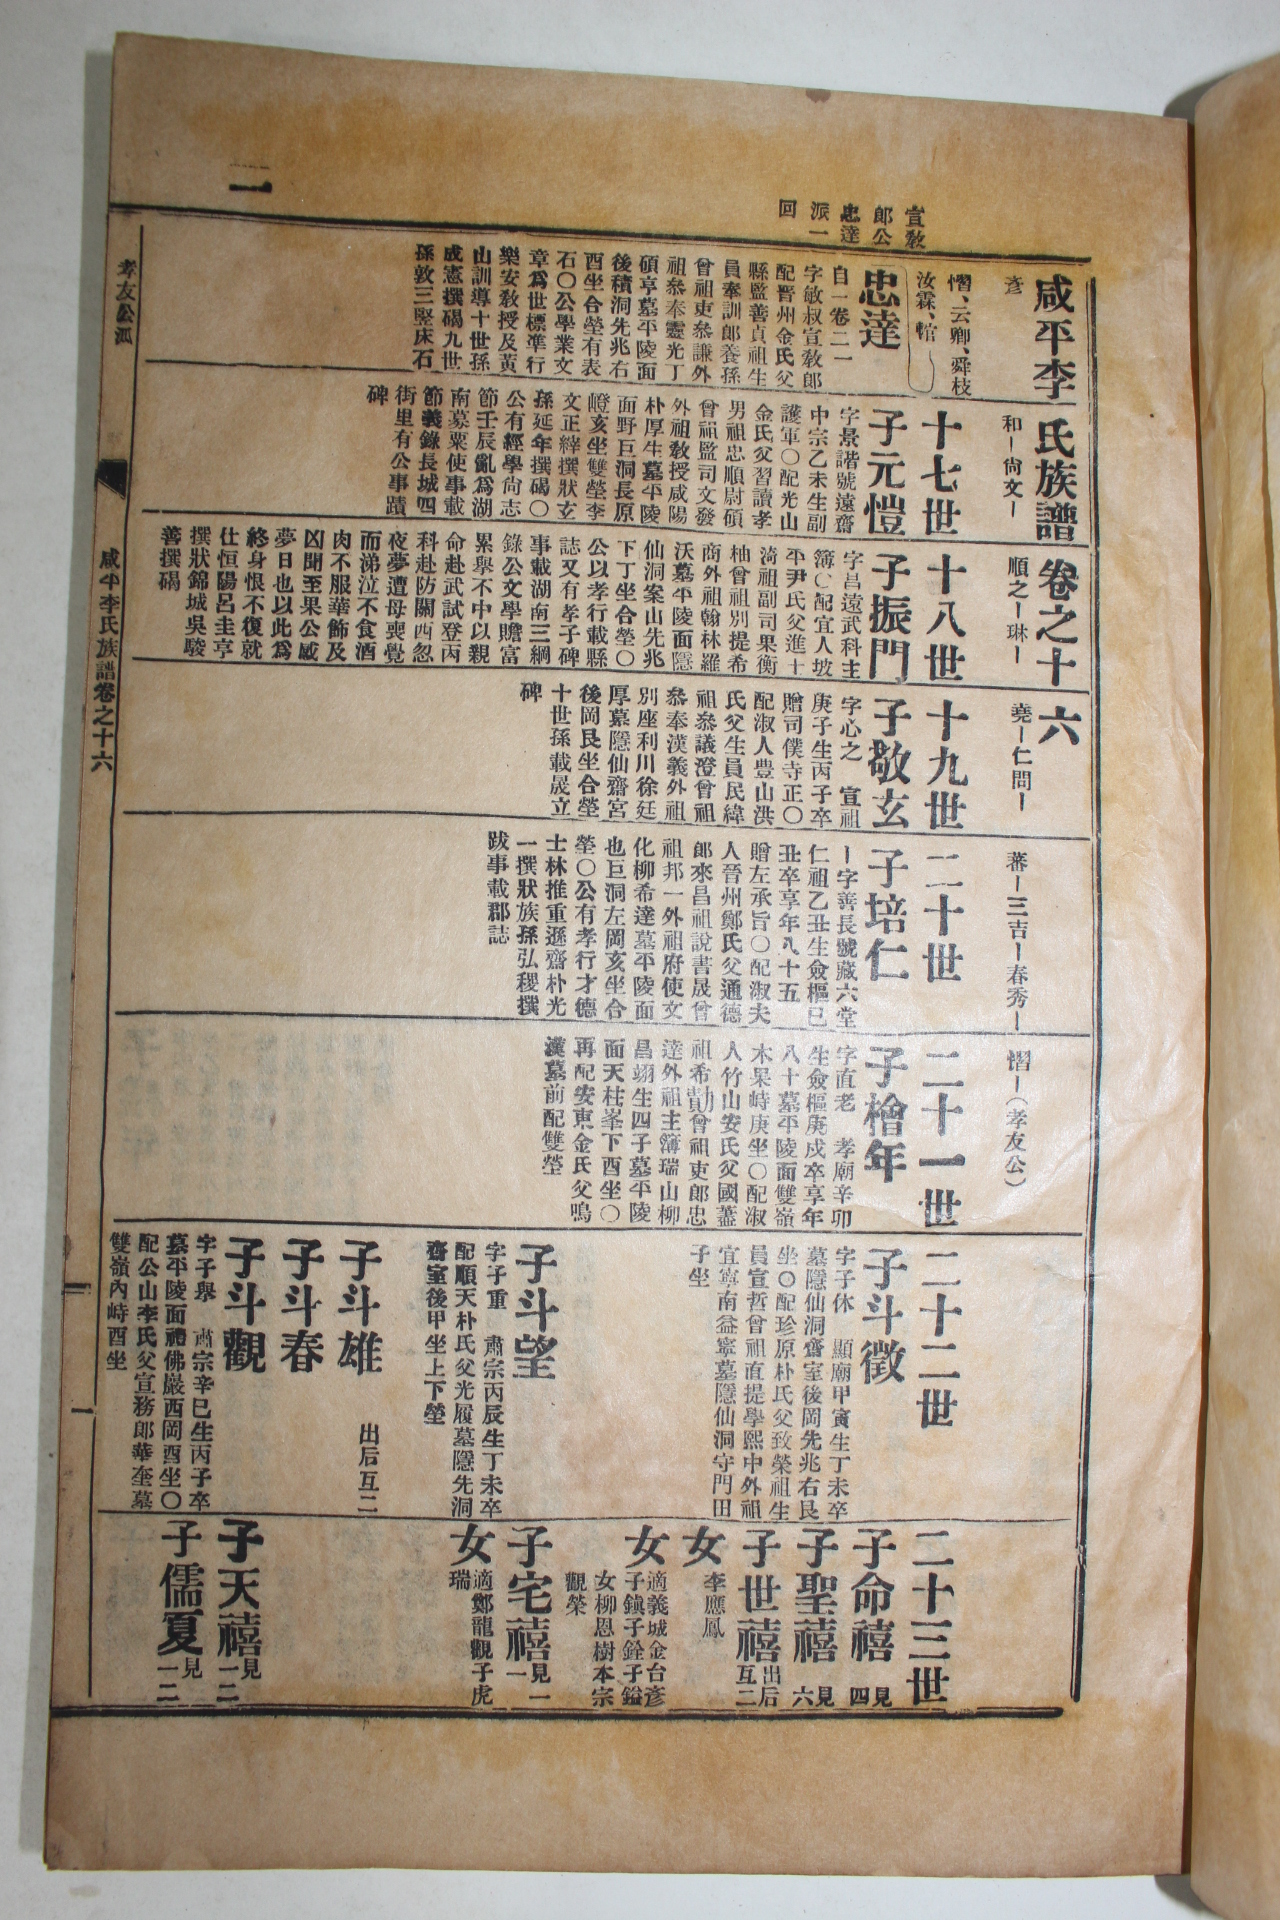 二
宣教
郎公
忠達
派一
回
咸平李氏族譜卷之十六
彦
和ー尙文ー
順之ー琳ー
堯ー仁問ー
蕃ー三吉ー春秀ー
慴ー(孝友公)
慴、云卿、舜枝
汝霖、㮙
忠達
自一卷二一
字敏叔宣敎郎
配晋州金氏父
縣監善貞祖生
員奉訓郎養孫
曾祖吏叅謙外
祖叅奉靈光丁
碩亨墓平陵面
後積洞先兆右
酉坐合塋有表
石〇公學業文
章爲世標準行
樂安敎授及黃
山訓導十世孫
成憲撰碣九世
孫敦三竪床石
十七世
子元愷
字景諧號遠齋
中宗乙未生副
護軍〇配光山
金氏父習讀孝
男祖忠順尉碩
曾祖監司文發
外祖敎授咸陽
朴厚生墓平陵
面野巨洞長原
嶝亥坐雙塋李
文正縡撰狀玄
孫延年撰碣〇
公有經學尙志
節壬辰亂爲湖
南募粟使事載
節義錄長城四
街里有公事蹟
碑
十八世
子振門
字昌遠武科主
簿〇配宜人坡
平尹氏父進士
漪祖副司果衡
柚曾祖別提希
商外祖翰林羅
沃墓平陵面隱
仙洞案山先兆
下丁坐合塋〇
公以孝行載縣
誌又有孝子碑
事載湖南三綱
錄公文學贍富
累擧不中以親
命赴武試登丙
科赴防關西忽
夜夢遭母喪覺
而涕泣不食酒
肉不服華飾及
凶聞至果公慽
夢日也以此爲
終身恨不復就
仕恒陽呂圭亨
撰狀錦城吳駿
善撰碣
十九世
子敬玄
字心之　宣祖
庚子生丙子卒
贈司僕寺正〇
配淑人豊山洪
氏父生員民緯
祖叅議澄曾祖
叅奉漢義外祖
別座利川徐廷
厚墓隱仙齋宮
後岡艮坐合塋
十世孫載晟立
碑
二十世
子培仁
ー字善長號藏六堂
仁祖乙丑生僉樞已
丑卒享年八十五
贈左承旨〇配淑夫
人晉州鄭氏父通德
郎來昌祖說書晟曾
祖邦一外祖府使文
化柳希達墓平陵面
也巨洞左岡亥坐合
塋〇公有孝行才德
士林推重遜齋朴光
一撰狀族孫弘稷撰
跋事載郡誌
二十一世
子檜年
字直老　孝廟辛卯
生僉樞庚戌卒享年
八十墓平陵面雙嶺
木果峙庚坐〇配淑
人竹山安氏父國藎
祖希勣曾祖吏郎忠
達外祖主簿瑞山柳
昌翊生四子墓平陵
面天柱峯下酉坐〇
再配安東金氏父鳴
漢墓前配雙塋
二十二世
子斗徵
字子休　顯廟甲寅生丁未卒
墓隱仙洞齋室後岡先兆右艮
坐〇配珍原朴氏父致榮祖生
員宣哲曾祖直提學熙中外祖
宜寧南益寧墓隱仙洞守門田
子坐
子斗望
字子重　肅宗丙辰生丁未卒
配順天朴氏父光履墓隱先洞
齋室後甲坐上下塋
子斗雄　出后互二
子斗春
子斗觀
字子擧　肅宗辛巳生丙子卒
墓平陵面禮佛嚴西岡酉坐〇
配公山李氏父宣務郎華奎墓
雙嶺內峙酉坐
二十三世
子命禧見四
子聖禧見六
子世禧出后互二
女　李應鳳
女　適義城金台彥
子鎭子銓子鎰
女柳恩樹本宗
觀榮
子宅禧見一一
女　適鄭龍觀子虎
瑞
子天禧見一二
子儒夏見一二
孝友公派
咸平李氏族譜卷之十六
一